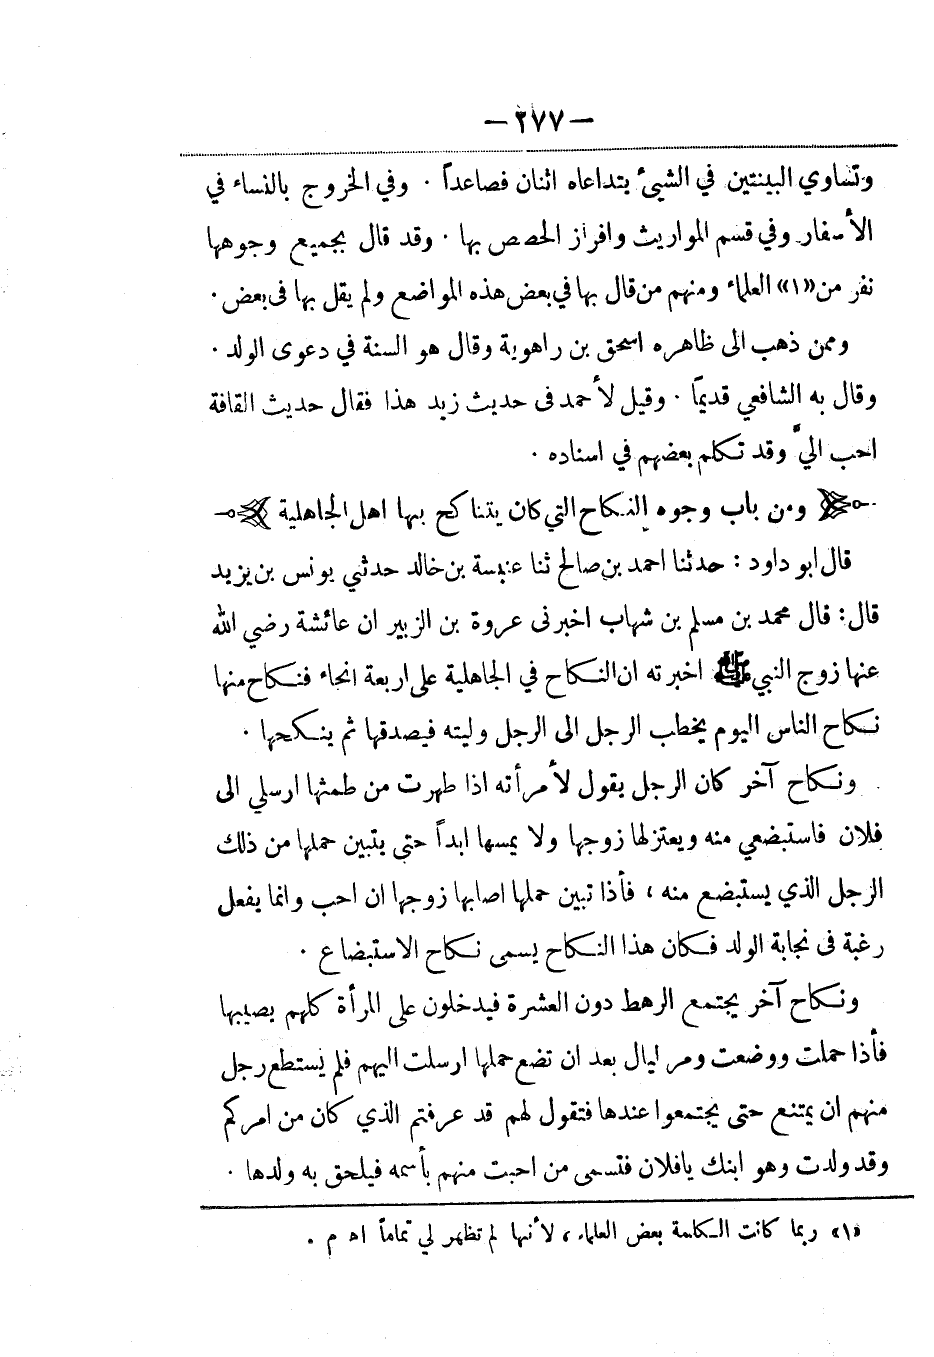 — ٢٧٧ —
وتساوي البينتين في الشيئ يتداعاه اثنان فصاعداً . وفي الخروج بالنساء في
الأسفار وفي قسم المواريث وافراز الحصص بها . وقد قال بجميع وجوهها
نفر من «١» العلماء ومنهم من قال بها في بعض هذه المواضع ولم يقل بها في بعض .
وممن ذهب الى ظاهره اسحق بن راهوية وقال هو السنة في دعوى الولد .
وقال به الشافعي قديمًا . وقيل لأحمد في حديث زيد هذا فقال حديث القافة
احب اليّ وقد تكلم بعضهم في اسناده .
ومن باب وجوه النكاح التي كان يتناكح بها اهل الجاهلية
قال ابو داود : حدثنا احمد بن صالح ثنا عنبسة بن خالد حدثني يونس بن يزيد
قال : قال محمد بن مسلم بن شهاب اخبرني عروة بن الزبير ان عائشة رضي الله
عنها زوج النبي ﷺ اخبرته ان النكاح في الجاهلية على اربعة انحاء فنكاح منها
نكاح الناس اليوم يخطب الرجل الى الرجل وليته فيصدقها ثم ينكحها .
ونكاح آخر كان الرجل يقول لأمرأته اذا طهرت من طمثها ارسلي الى
فلان فاستبضعي منه ويعتزلها زوجها ولا يمسها ابداً حتى يتبين حملها من ذلك
الرجل الذي يستبضع منه ، فأذا تبين حملها اصابها زوجها ان احب وانما يفعل
رغبة في نجابة الولد فكان هذا النكاح يسمى نكاح الاستبضاع .
ونكاح آخر يجتمع الرهط دون العشرة فيدخلون على المرأة كلهم يصيبها
فأذا حملت ووضعت ومر ليال بعد ان تضع حملها ارسلت اليهم فلم يستطع رجل
منهم ان يمتنع حتى يجتمعوا عندها فتقول لهم قد عرفتم الذي كان من امركم
وقد ولدت وهو ابنك يافلان فتسمى من احبت منهم بأسمه فيلحق به ولدها .
«١» ربما كانت الكلمة بعض العلماء ، لأنها لم تظهر لي تماماً اه م .